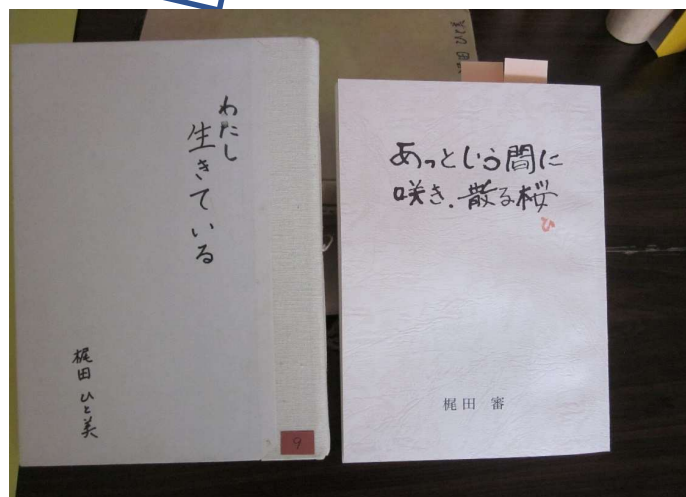 わたし
生きている
梶田 ひと美
9
あっという間に
咲き、散る桜
ひ
梶田 審
田 ひと美